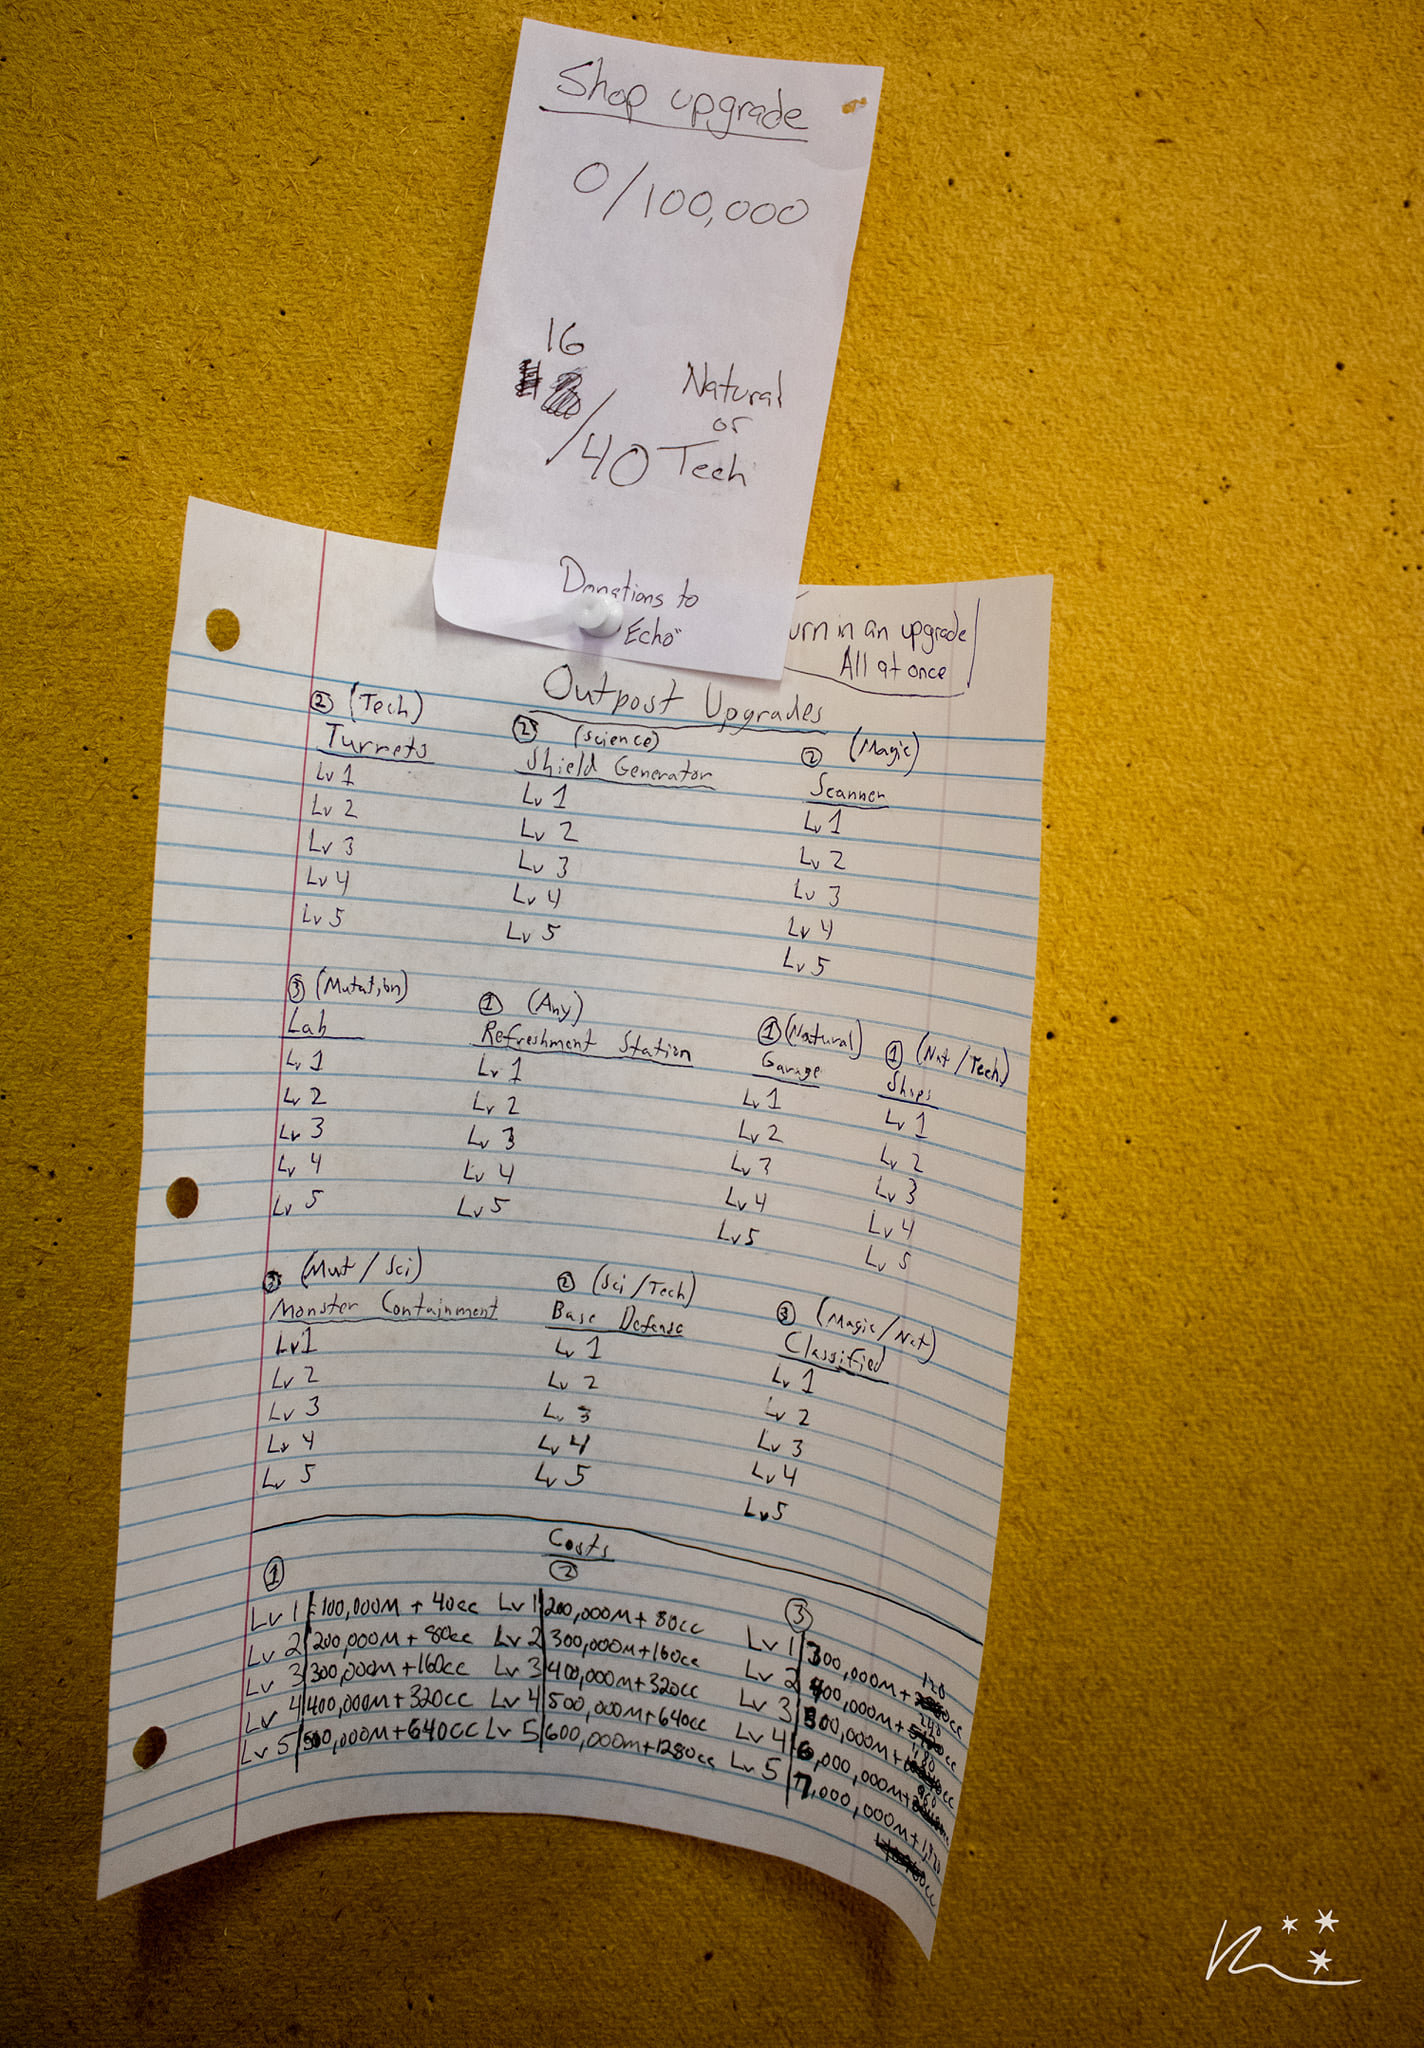 Shop upgrade
0/100,000
16
/40
Natural
or
Tech
Donations to
"Echo"
urn in an upgrade
All at once
Outpost Upgrades
② (Tech)
Turrets
Lv 1
Lv 2
Lv 3
Lv 4
Lv 5
② (science)
Shield Generator
Lv 1
Lv 2
Lv 3
Lv 4
Lv 5
② (Magic)
Scanner
Lv 1
Lv 2
Lv 3
Lv 4
Lv 5
③ (Mutation)
Lab
Lv 1
Lv 2
Lv 3
Lv 4
Lv 5
① (Any)
Refreshment Station
Lv 1
Lv 2
Lv 3
Lv 4
Lv 5
① (Natural)
Garage
Lv 1
Lv 2
Lv 3
Lv 4
Lv 5
① (Nat/Tech)
Ships
Lv 1
Lv 2
Lv 3
Lv 4
Lv 5
③ (Mut/Sci)
Monster Containment
Lv 1
Lv 2
Lv 3
Lv 4
Lv 5
② (Sci/Tech)
Base Defense
Lv 1
Lv 2
Lv 3
Lv 4
Lv 5
③ (Magic/Nat)
Classified
Lv 1
Lv 2
Lv 3
Lv 4
Lv 5
Costs
①
Lv 1 100,000M + 40cc
Lv 2 200,000M + 80cc
Lv 3 300,000M + 160cc
Lv 4 400,000M + 320cc
Lv 5 500,000M + 640cc
②
Lv 1 200,000M + 80cc
Lv 2 300,000M + 160cc
Lv 3 400,000M + 320cc
Lv 4 500,000M + 640cc
Lv 5 600,000M + 1280cc
③
Lv 1 300,000M + 120cc
Lv 2 400,000M + 240cc
Lv 3 500,000M + 480cc
Lv 4 6,000,000M + 960cc
Lv 5 7,000,000M + 1,920cc